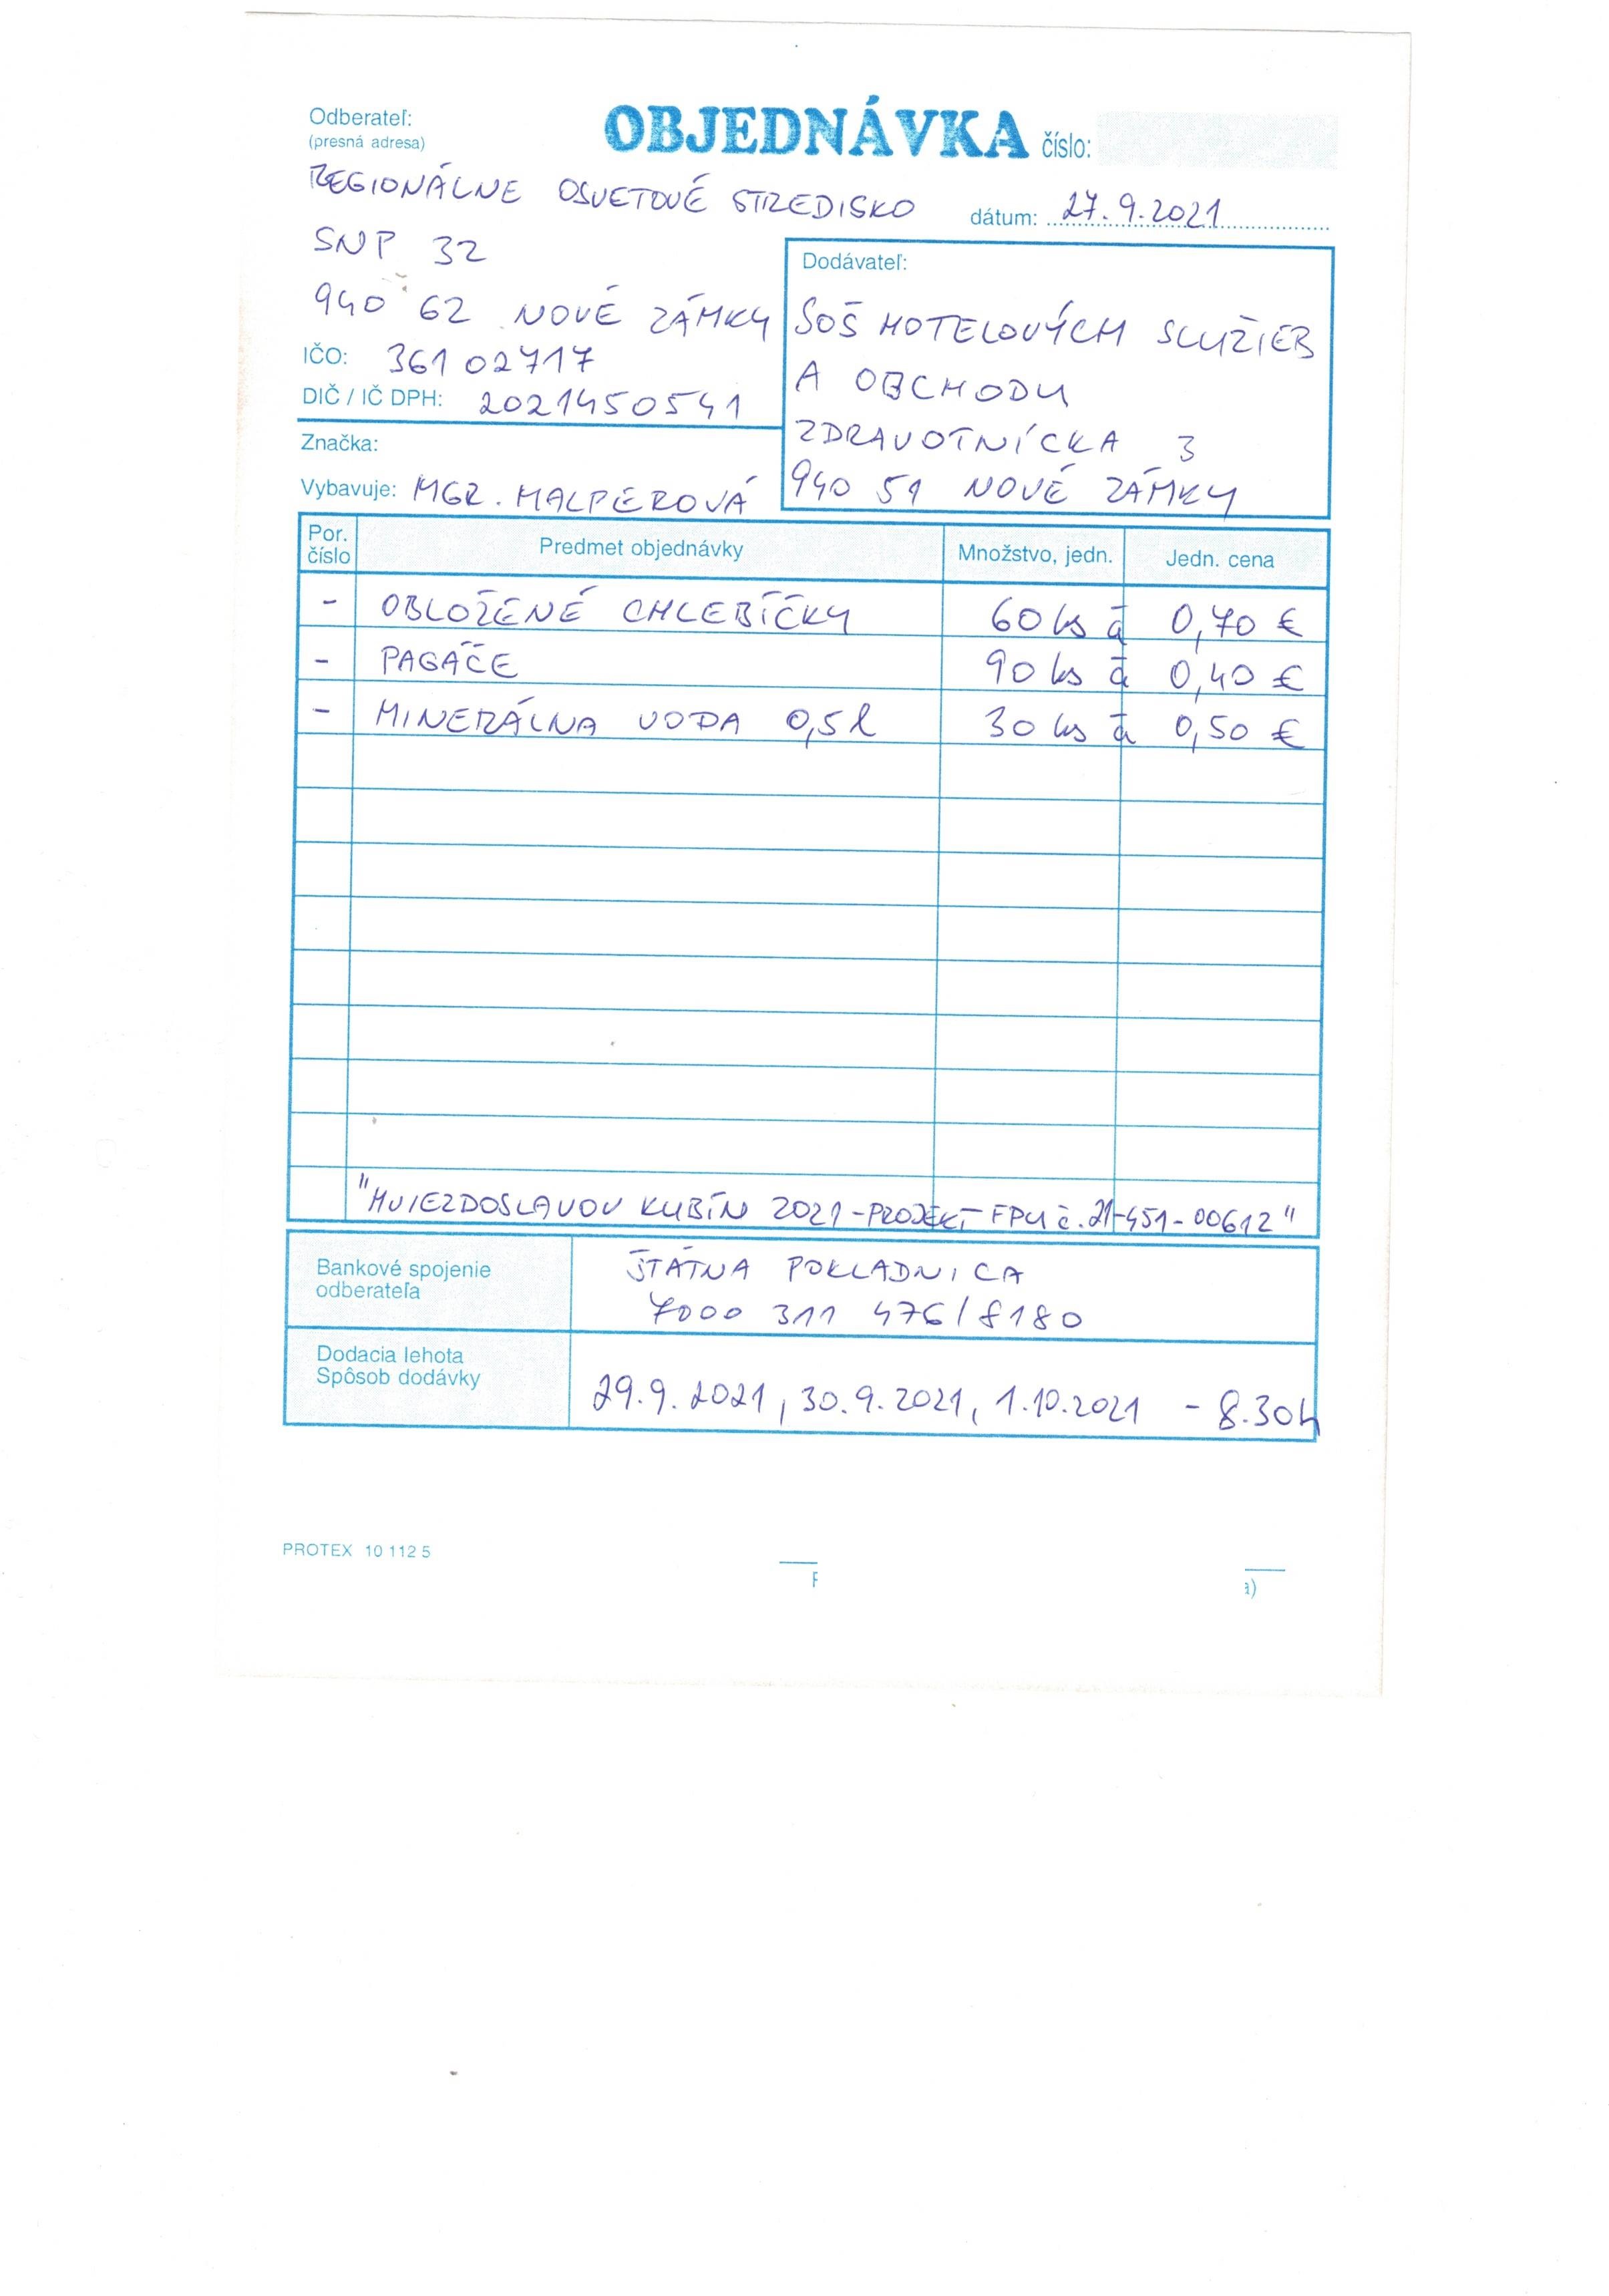 Odberateľ:
(presná adresa)
OBJEDNÁVKA číslo:
REGIONÁLNE OSVETOVÉ STREDISKO
dátum: 27.9.2021
SNP 32
940 62 NOVÉ ZÁMKY
IČO: 361 02717
DIČ / IČ DPH: 2021450541
Značka:
Vybavuje: MGR. MALPEROVÁ
Dodávateľ:
SOŠ HOTELOVÝCH SLUŽIEB
A OBCHODU
ZDRAVOTNÍCKA 3
940 51 NOVÉ ZÁMKY
Por. číslo Predmet objednávky Množstvo, jedn. Jedn. cena
- OBLOŽENÉ CHLEBÍČKY 60 ks á 0,70 €
- PAGÁČE 90 ks á 0,40 €
- MINERÁLNA VODA 0,5 l 30 ks á 0,50 €
"HVIEZDOSLAVOV KUBÍN 2021 - PROJEKT FPU č. 21-451-00612"
Bankové spojenie
odberateľa
ŠTÁTNA POKLADNICA
7000 311 476/8180
Dodacia lehota
Spôsob dodávky
29.9.2021, 30.9.2021, 1.10.2021 - 8.30h
PROTEX 10 112 5
a)